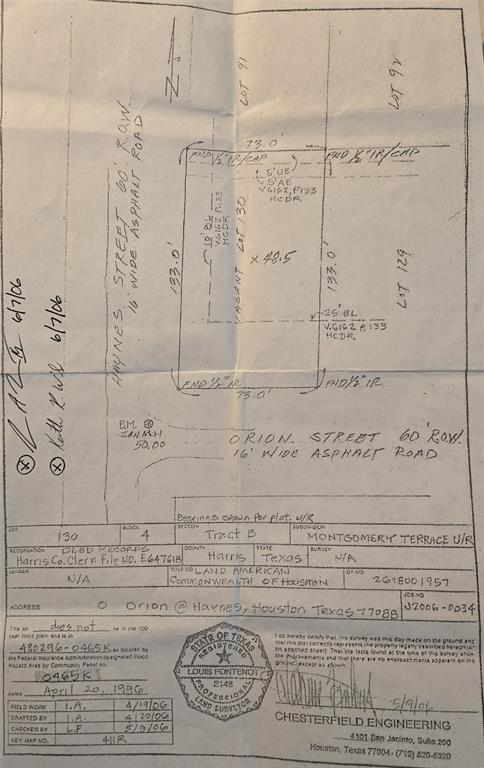 LOT 91
LOT 92
73.0'
FND ½" IR/CAP
FND ½" IR/CAP
5' UE
5' AE
V.6162, P.133
HCDR
10' BL
V.6162 P.133
HCDR
VACANT LOT 130
x 48.5
133.0'
133.0'
LOT 129
25' BL
V.6162 P.133
HCDR
FND ½" IR
73.0'
FND ½" IR
HAYNES STREET 60' R.O.W.
16' WIDE ASPHALT ROAD
6/7/06
6/7/06
B.M.
SAN.M.H.
50.00
ORION STREET 60' ROW
16' WIDE ASPHALT ROAD
Bearings shown per plat. U/R
LOT 130
BLOCK 4
SECTION Tract B
SUBDIVISION MONTGOMERY TERRACE U/R
RECORDATION DEED RECORDS
Harris Co. Clerk File NO. E647618
COUNTY Harris
STATE Texas
SURVEY N/A
LENDER N/A
TITLE CO. LAND AMERICAN
COMMONWEALTH OF HOUSTON
GF NO. 2648001957
ADDRESS 0 Orion @ Haynes, Houston Texas 77088
JOB NO. J2006-0034
This lot does not lie in the 100
year flood plain and is in
480296-0465K as located by
the Federal Insurance Administration designated Flood
Hazard Area by Community Panel No.
0465K
dated April 20, 1996
FIELD WORK I.A. 4/19/06
DRAFTED BY I.A. 4/20/06
CHECKED BY L.F. 5/9/06
KEY MAP NO. 411R
STATE OF TEXAS
REGISTERED
LOUIS FONTENOT
2148
PROFESSIONAL
LAND SURVEYOR
I do hereby certify that this survey was this day made on the ground and
that this plat correctly represents the property legally described hereon (or
on attached sheet). That the facts found at the time of this survey show
the improvements and that there are no encroachments apparent on the
ground, except as shown.
5/9/06
CHESTERFIELD ENGINEERING
4101 San Jacinto, Suite 200
Houston, Texas 77004 - (713) 520-5920